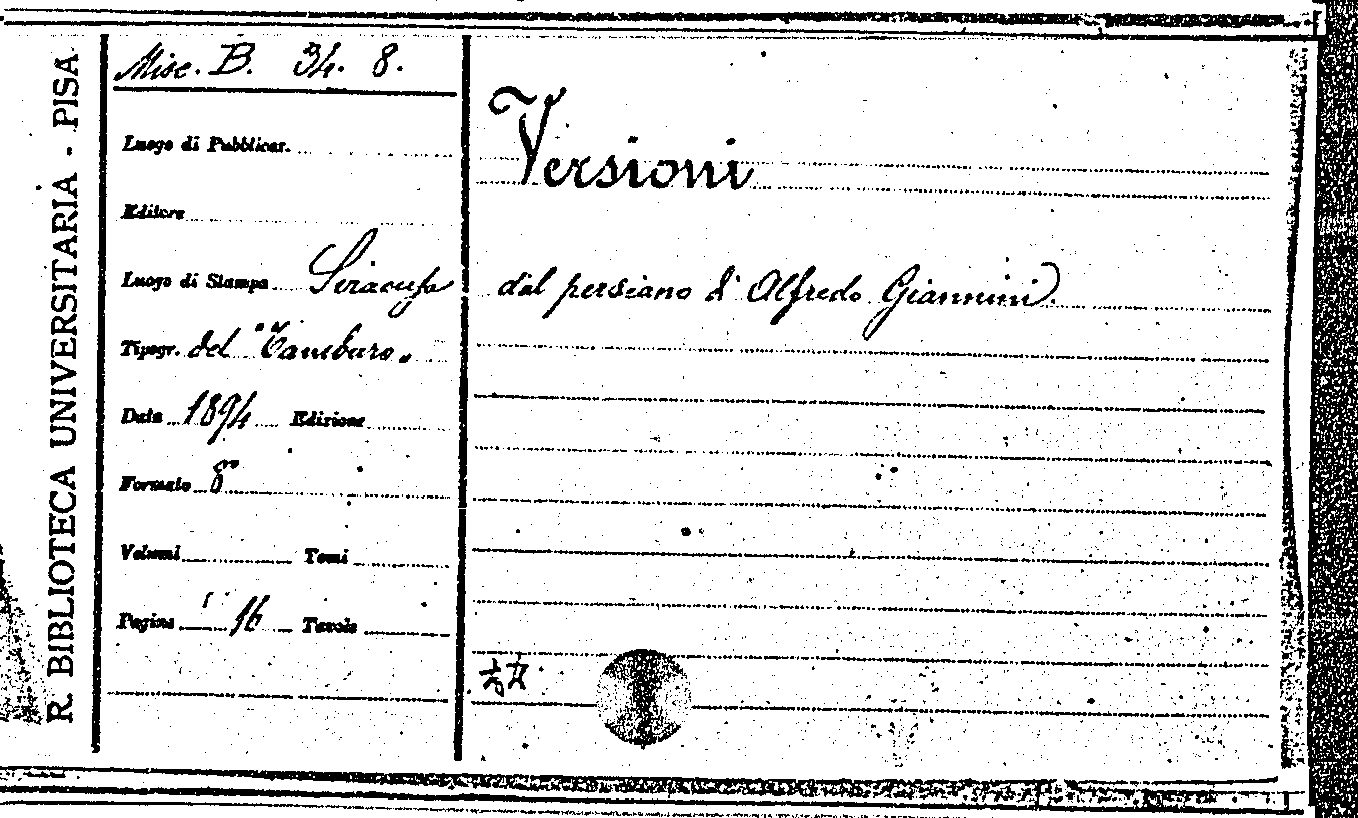 R. BIBLIOTECA UNIVERSITARIA - PISA
Misc. B. 34. 8.
Luogo di Pubblicaz.
Editore
Luogo di Stampa Siracusa
Tipogr. del "Tamburo„
Data 1894 Edizione
Formato 8°
Volumi Tomi
Pagine 16 Tavole
Versioni
dal persiano di Alfredo Giannini.